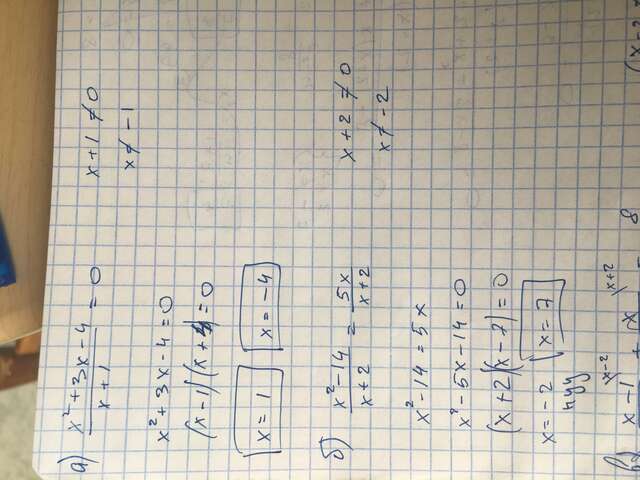 а) (x² + 3x - 4)/(x + 1) = 0    x + 1 ≠ 0
x ≠ -1
x² + 3x - 4 = 0
(x - 1)(x + 4) = 0
x = 1    x = -4
б) (x² - 14)/(x + 2) = 5x/(x + 2)    x + 2 ≠ 0
x ≠ -2
x² - 14 = 5x
x² - 5x - 14 = 0
(x + 2)(x - 7) = 0
x = -2    x = 7
x - 2    x + 2
x - 1    +    x    8
(x - 2